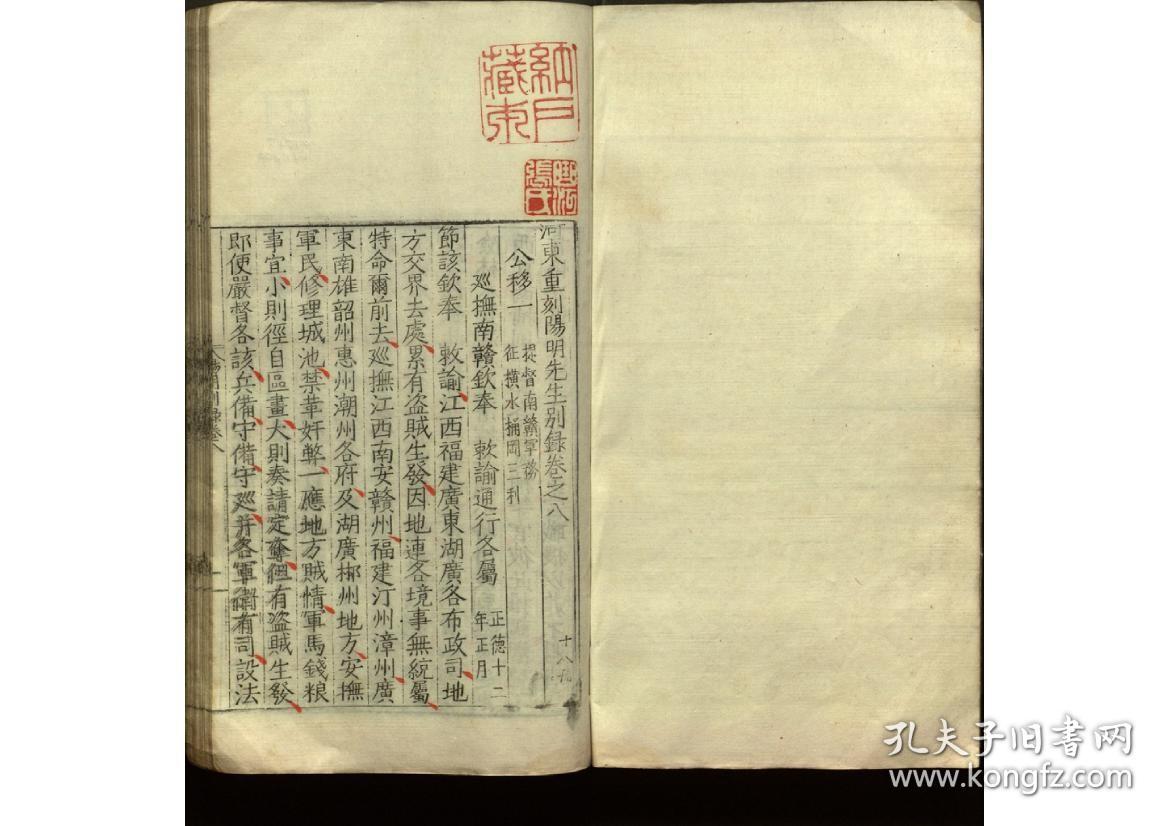 河東重刻陽明先生別録卷之八
十八
公移一 提督南贛軍務
征橫水桶岡三利
巡撫南贛欽奉 敕諭通行各屬 正德十二
年正月
節該欽奉 敕諭江西福建廣東湖廣各布政司地
方交界去處累有盜賊生發因地連各境事無統屬
特命爾前去巡撫江西南安贛州福建汀州漳州廣
東南雄韶州惠州潮州各府及湖廣郴州地方安撫
軍民修理城池禁革奸弊一應地方賊情軍馬錢粮
事宜小則徑自區畫大則奏請定奪但有盜賊生發
即便嚴督各該兵備守備守巡并各軍衛有司設法
張氏
藏
孔夫子旧书网
www.kongfz.com